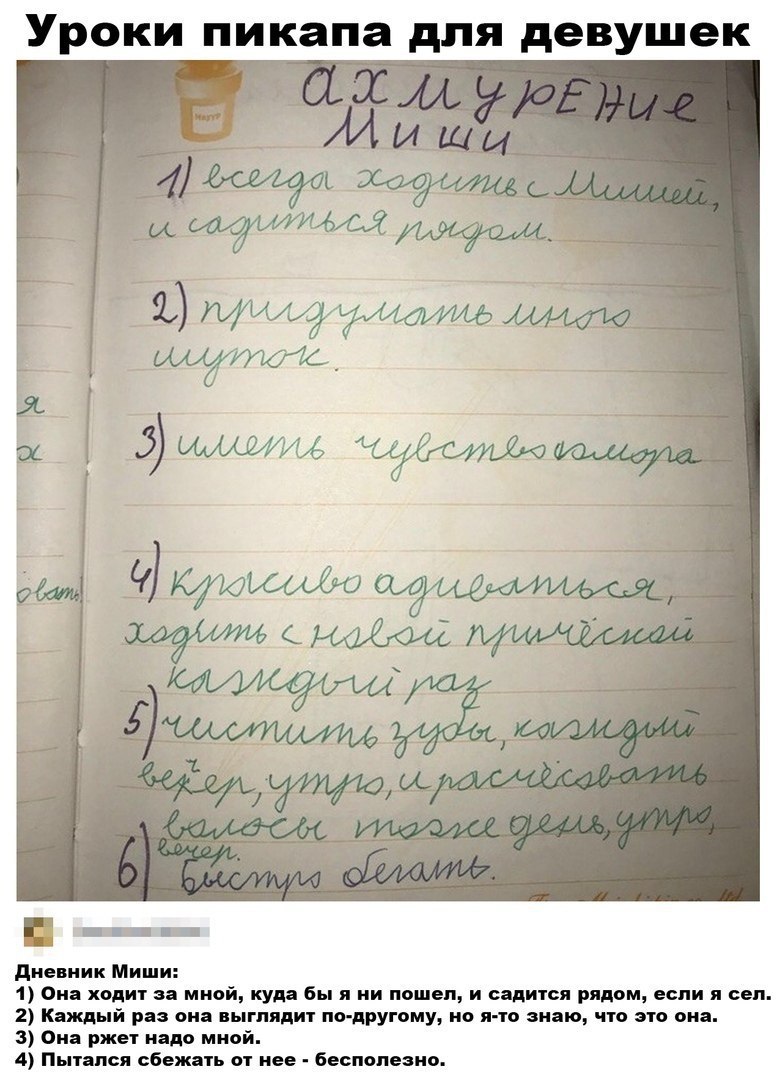 Уроки пикапа для девушек
ахмурЕние
Миши
1) всегда ходить с Мишей,
и садиться рядом.
2) придумать много
шуток.
3) иметь чувство юмора
4) красиво адиваться,
ходить с новой причёской
каждый раз
5) чистить зубы, каждый
вечер, утро, и расчёсовать
волосы тоже день, утро,
вечер.
6) Быстро бегать.
я
х
овать
Дневник Миши:
1) Она ходит за мной, куда бы я ни пошел, и садится рядом, если я сел.
2) Каждый раз она выглядит по-другому, но я-то знаю, что это она.
3) Она ржет надо мной.
4) Пытался сбежать от нее - бесполезно.